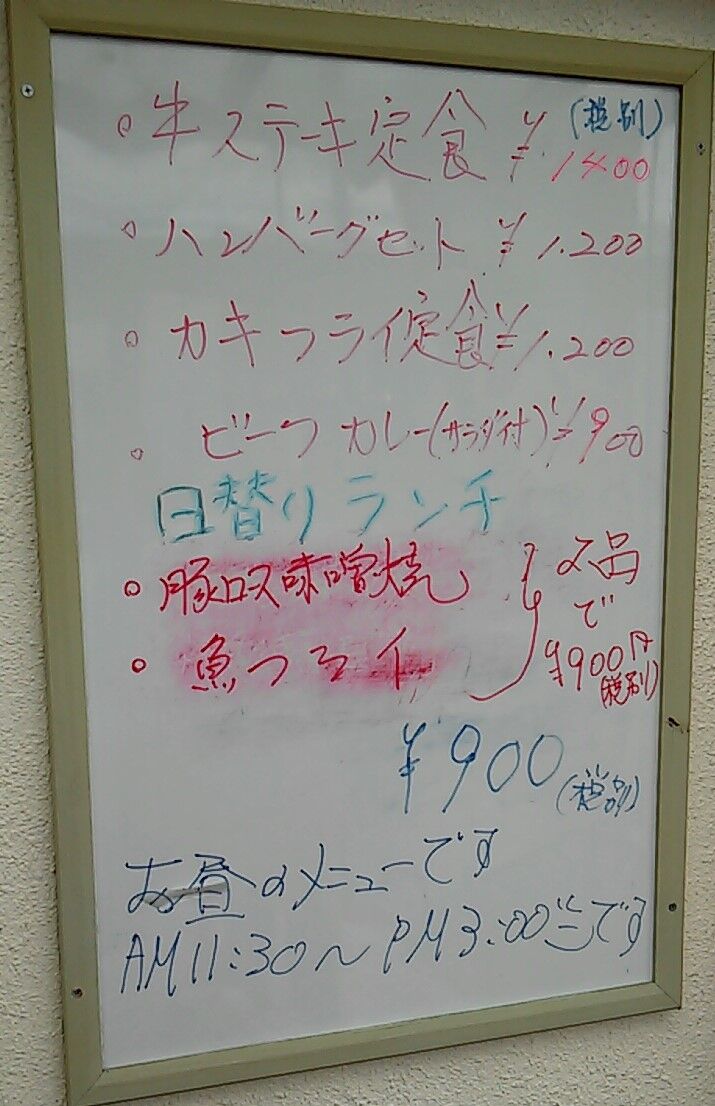 ・牛ステーキ定食 ¥1400 (税別)
・ハンバーグセット ¥1.200
・カキフライ定食 ¥1.200
・ビーフカレー(サラダ付) ¥900
日替りランチ
・豚ロス味噌焼
・魚フライ
2品
で
¥900円
(税別)
¥900(税別)
お昼のメニューです
AM11:30〜PM3:00までです